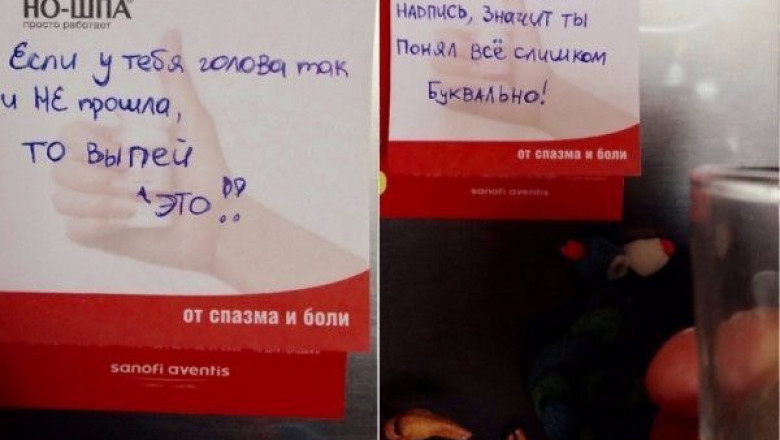 НО-ШПА
просто работает
Если у тебя голова так
и НЕ прошла,
ТО выпей
"ЭТО"!!
от спазма и боли
sanofi aventis
НАДПИСЬ, Значит ТЫ
Понял всё слишком
Буквально!
от спазма и боли
sanofi aventis